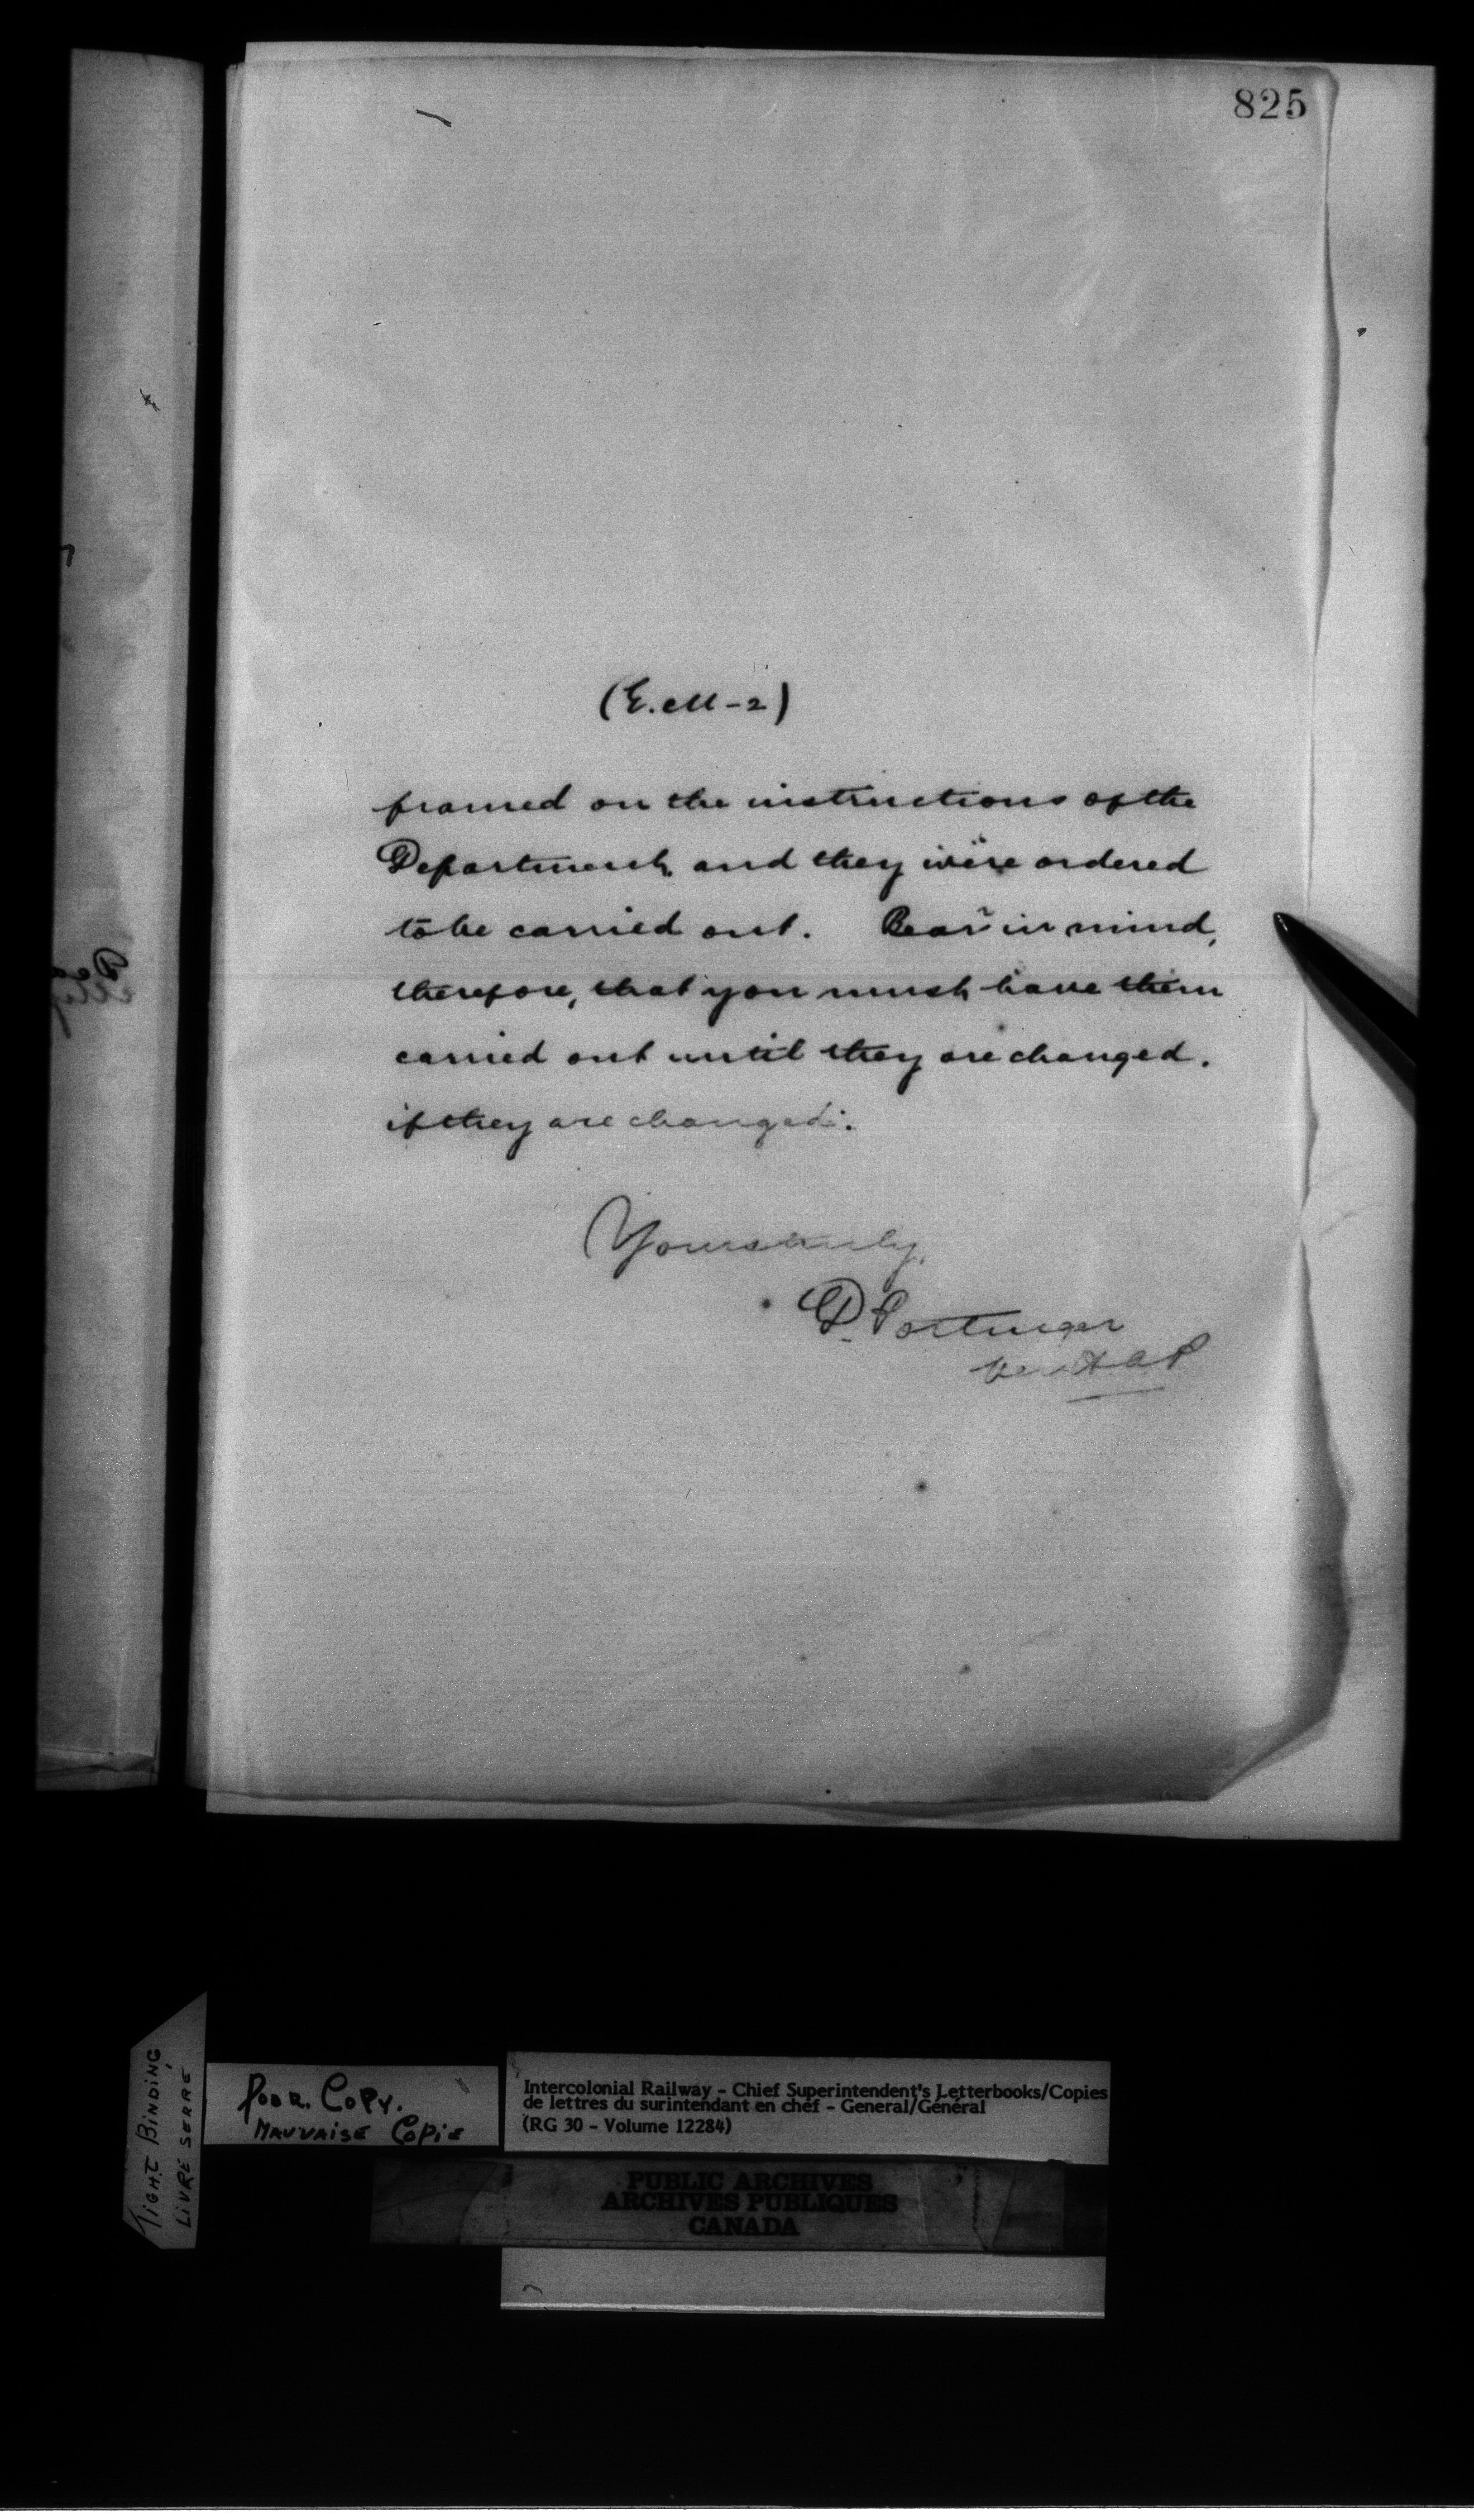 825
(E.M-2)
framed on the instructions of the
Department, and they were ordered
to be carried out. Bear in mind,
therefore, that you must have them
carried out until they are changed.
if they are changed.
Yours truly,
D. Pottinger
per
Poor Copy.
Mauvaise Copie
Tight Binding
Livre serré
Intercolonial Railway - Chief Superintendent's Letterbooks/Copies
de lettres du surintendant en chef - General/Général
(RG 30 - Volume 12284)
PUBLIC ARCHIVES
ARCHIVES PUBLIQUES
CANADA